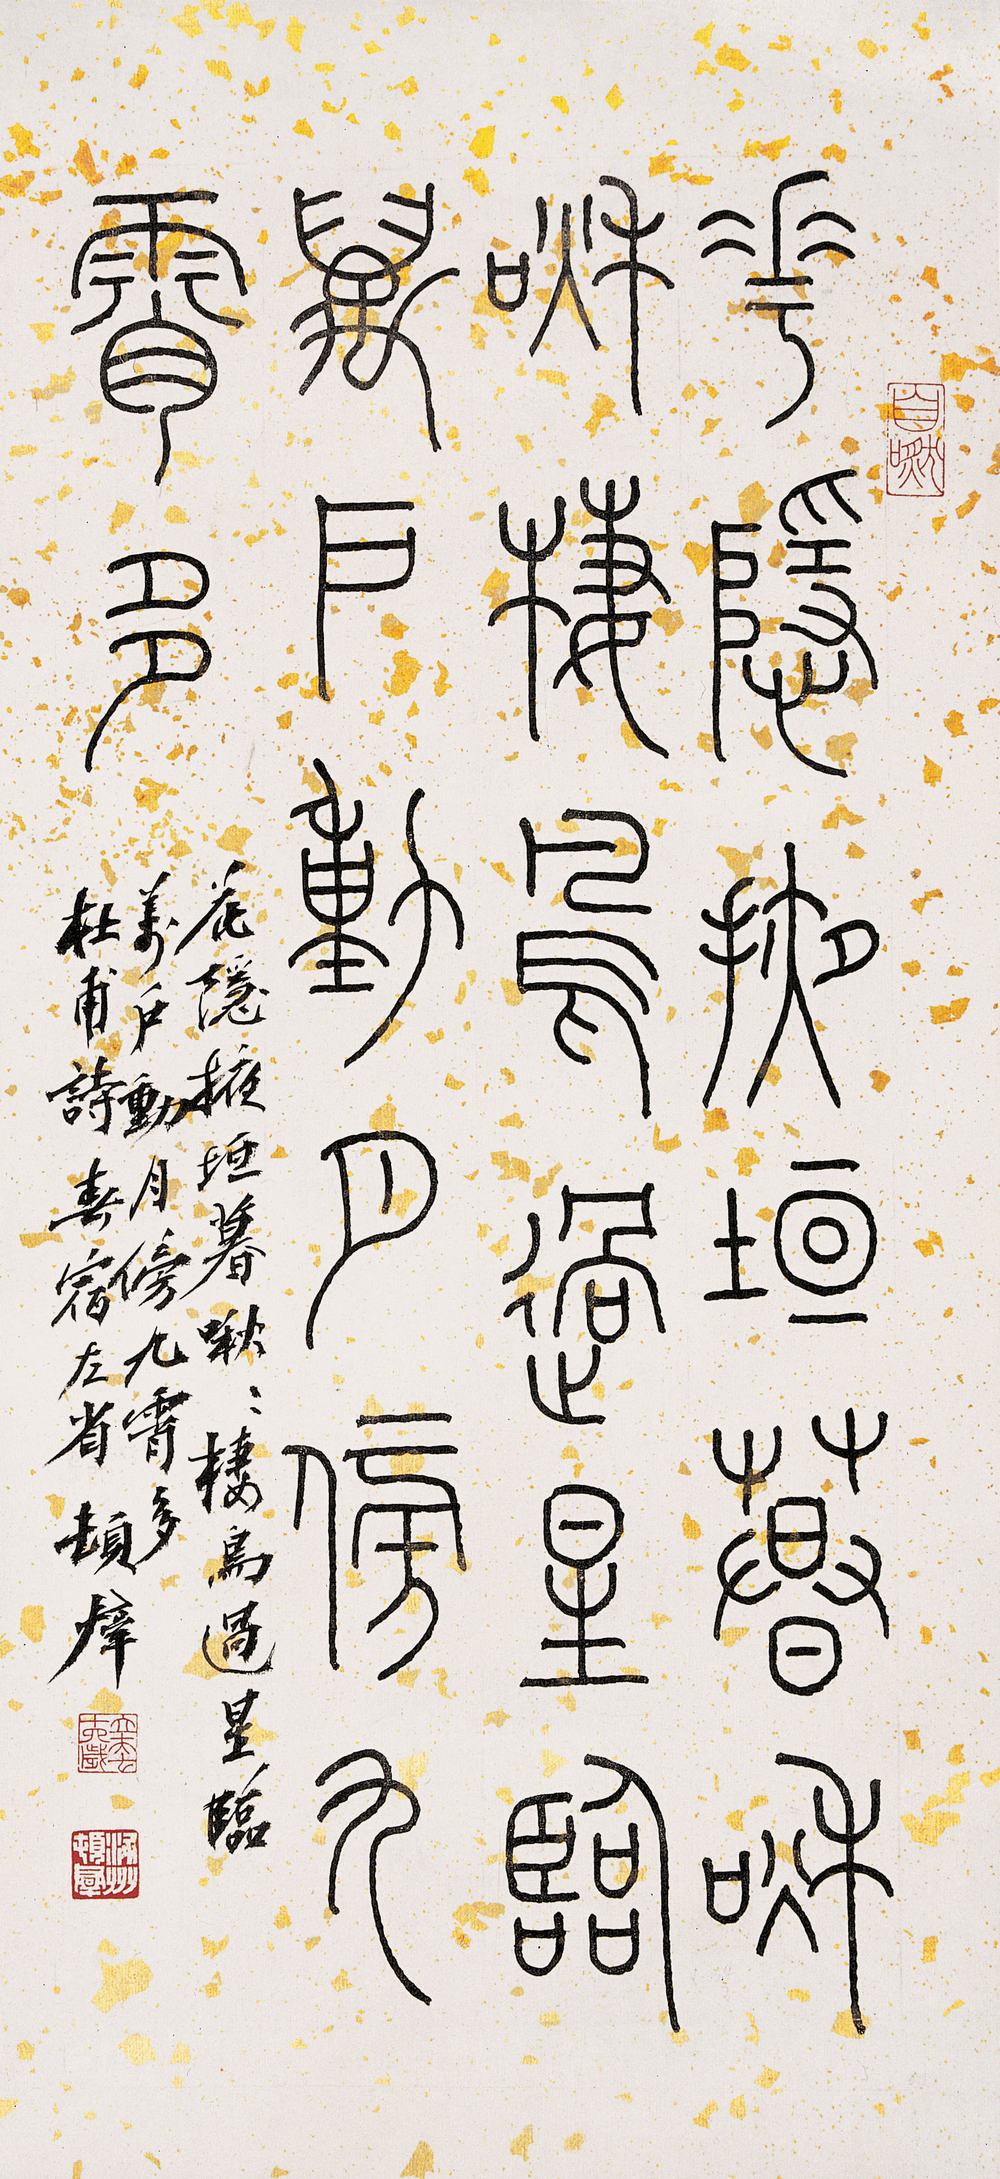 花隱掖垣暮啾
啾棲鳥過星臨
萬戶動月傍九
霄多
花隱掖垣暮啾〻棲鳥過星臨
萬戶動月傍九霄多
杜甫詩春宿左省 頓群